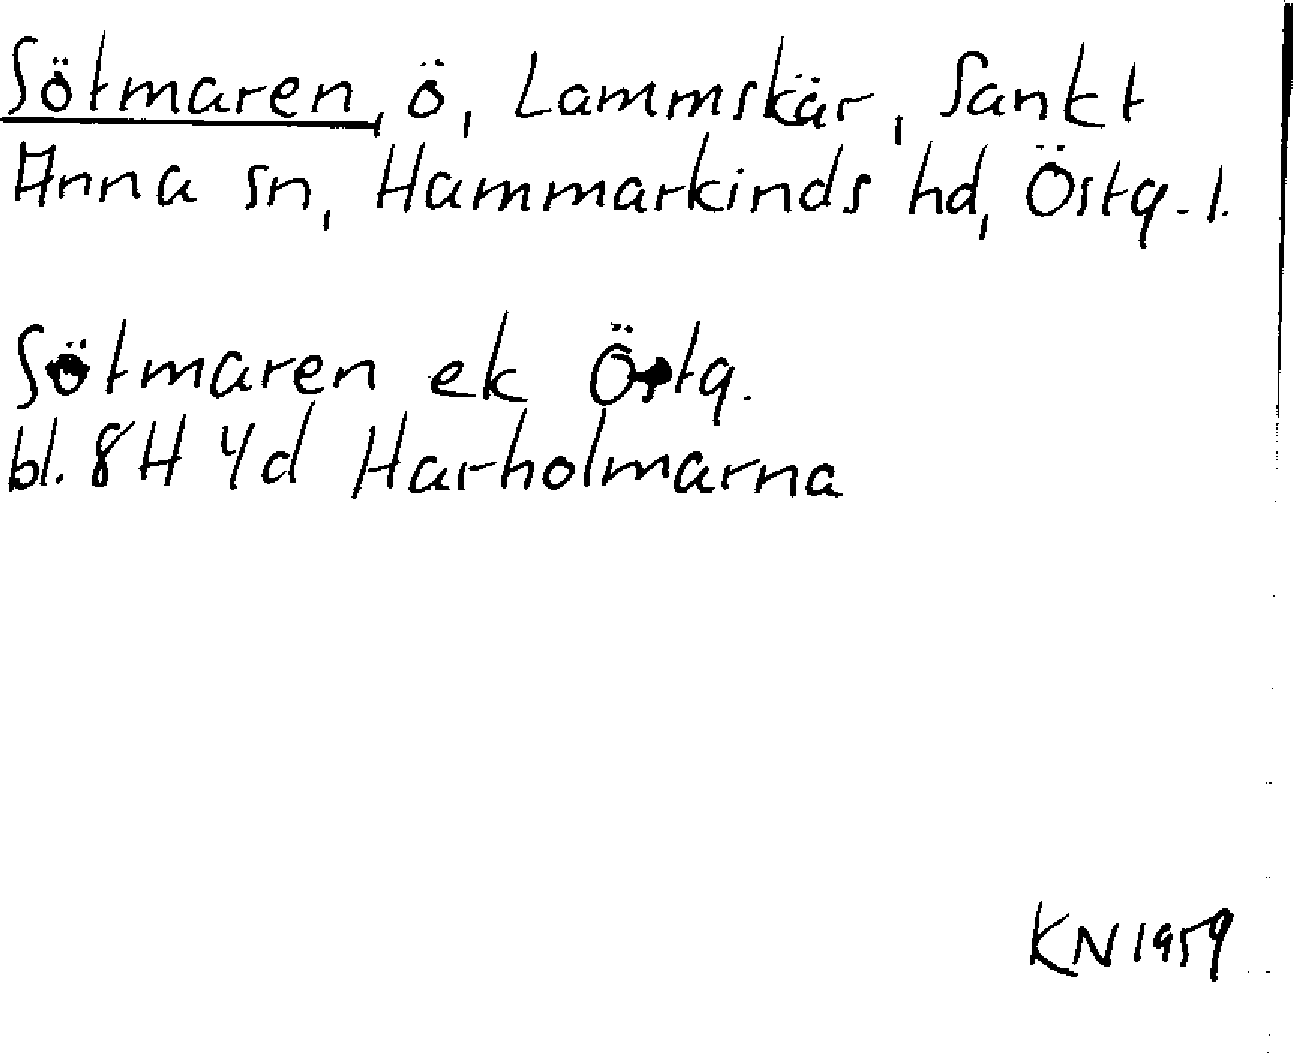 Sötmaren, ö, Lammskär, Sankt
Anna sn, Hammarkinds hd, Östg. l.
Sötmaren ek Östg.
bl. 8H 4d Harholmarna
KN 1959